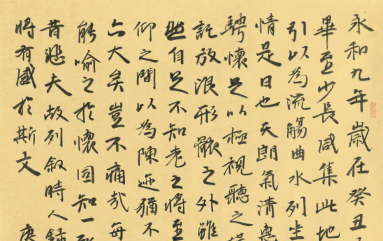 永和九年歲在癸丑
畢至少長咸集此地
引以為流觴曲水列坐
情是日也天朗氣清惠
騁懷足以極視聽之
託放浪形骸之外雖
然自足不知老之將至
仰之間以為陳迹猶不
亦大矣豈不痛哉每
能喻之於懷固知一
昔悲夫故列敘時人錄
將有感於斯文 庚